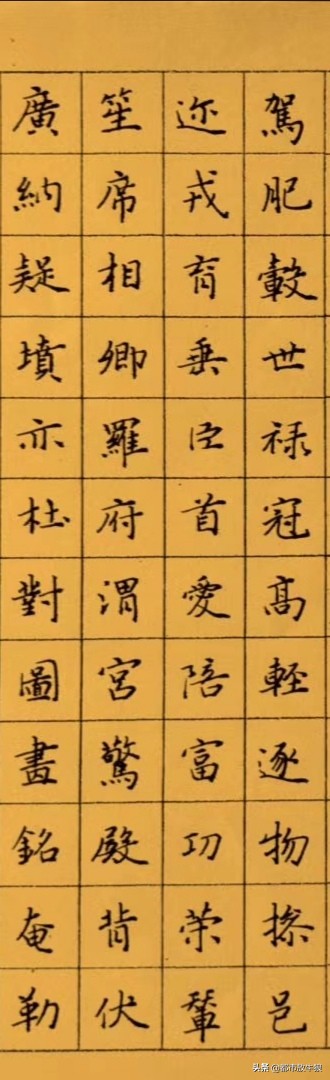 駕肥轂世禄冠高輕逐物操邑
迩戎育垂臣首愛陪富功荣輦
笙席相卿羅府渭宮驚殿背伏
廣納疑墳亦杜對圖畫銘奄勒
头条 @都市放牛